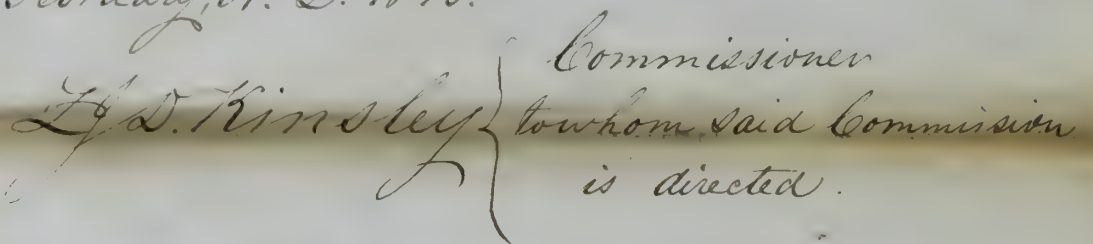 February, A. D. 18
D. Kinsley { Commissioner
to whom said Commission
is directed.